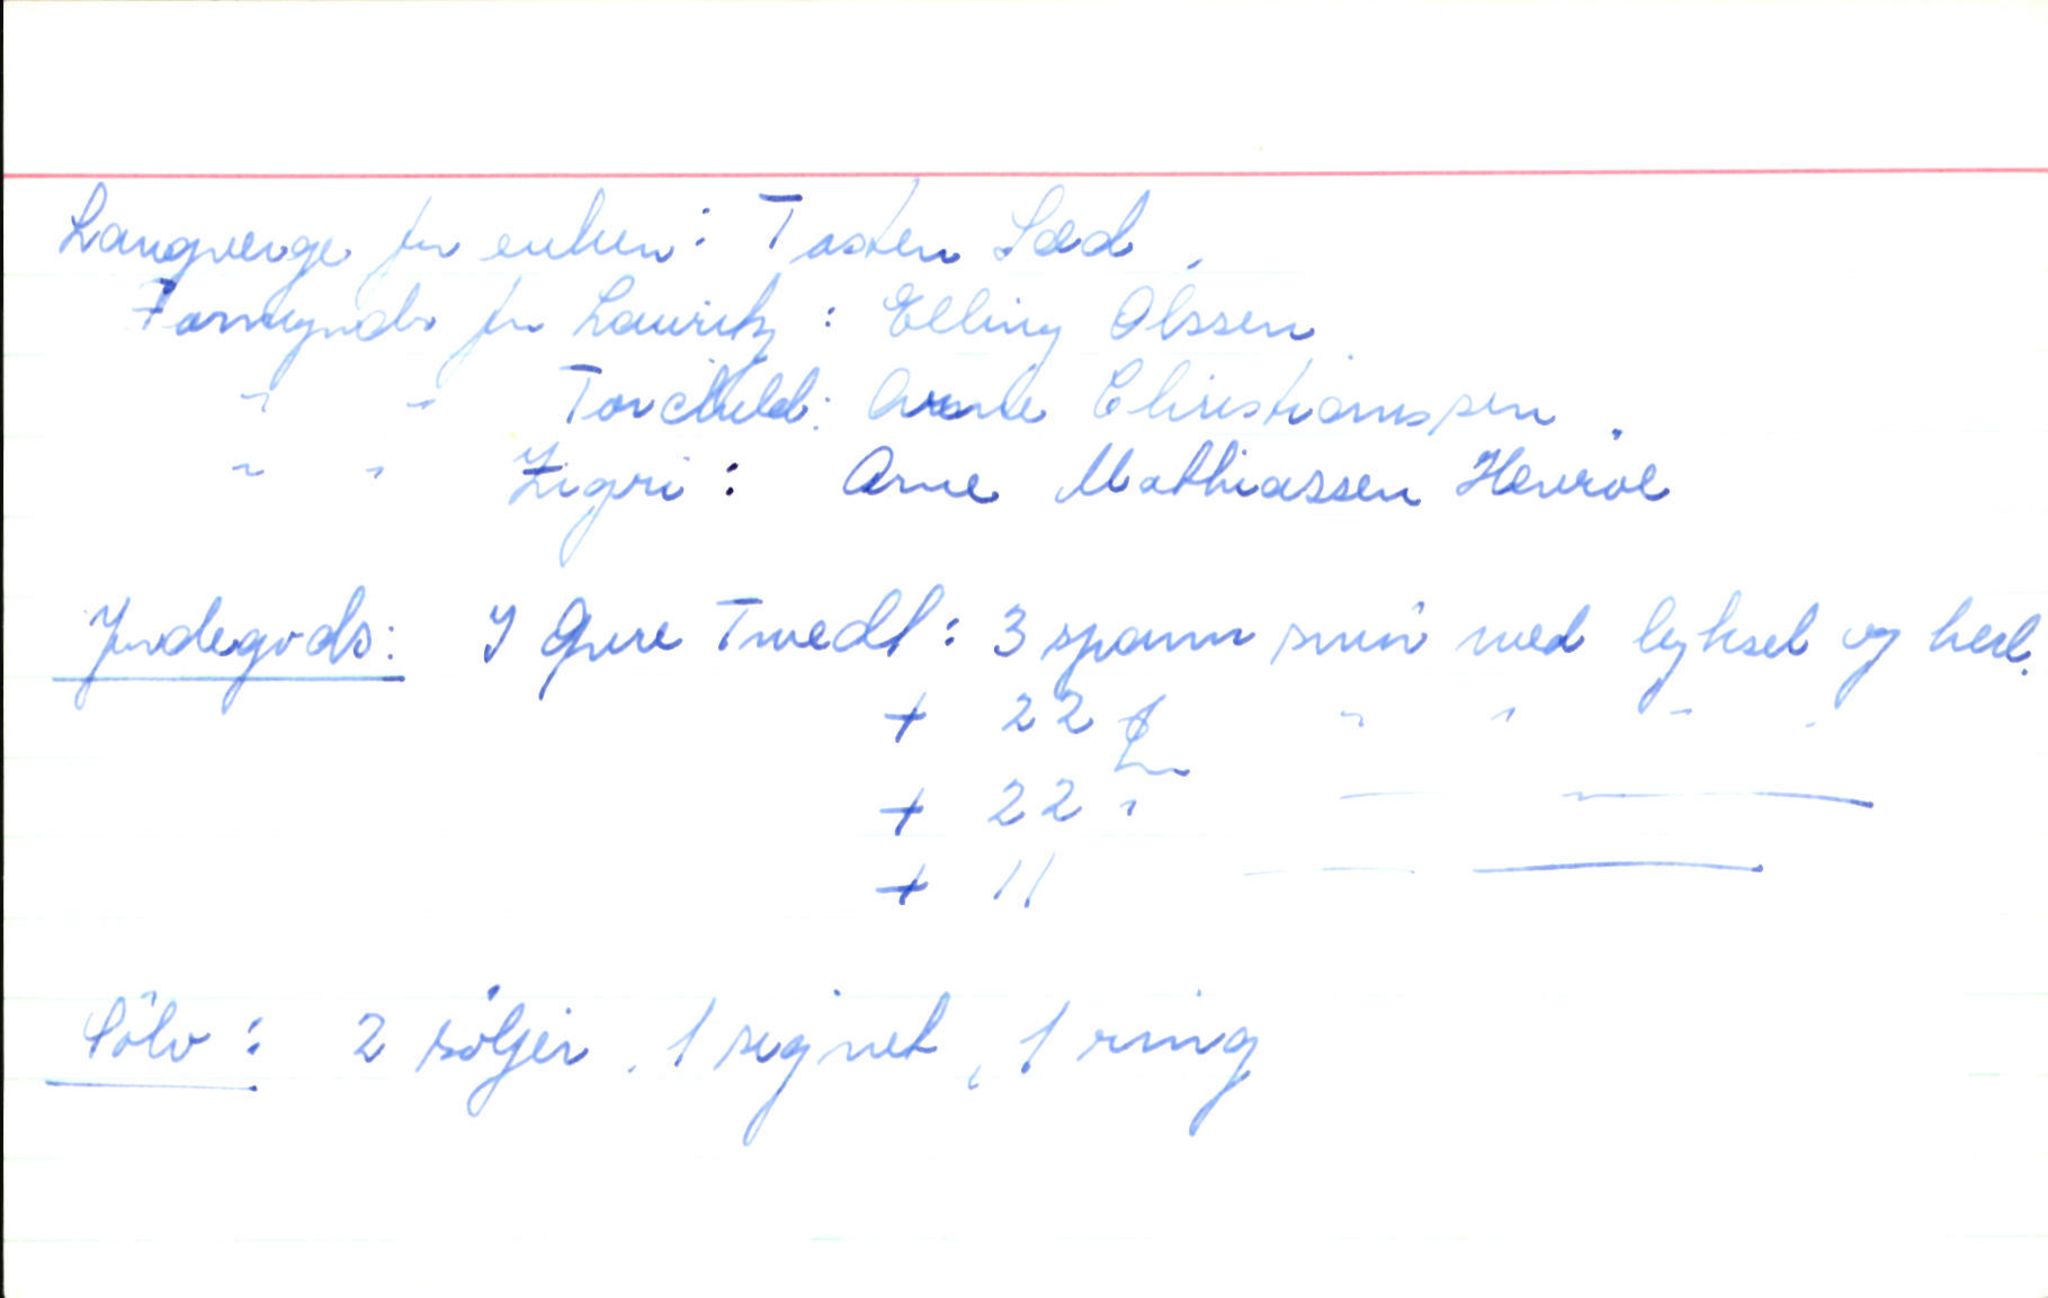 Laugverge for enken: Tosten Sæd,
Formynder for Lauritz: Elling Olssen
" " Torchild: Arne Christianssen.
" " Zigri: Arne Mathiassen Henriøe
Jordegods: I Øvre Tvedt: 3 spann smør med byksel og herl.
+ 22 " " " "
+ 22 "
+ 11
Sölv: 2 söljer, 1 signet, 1 ring